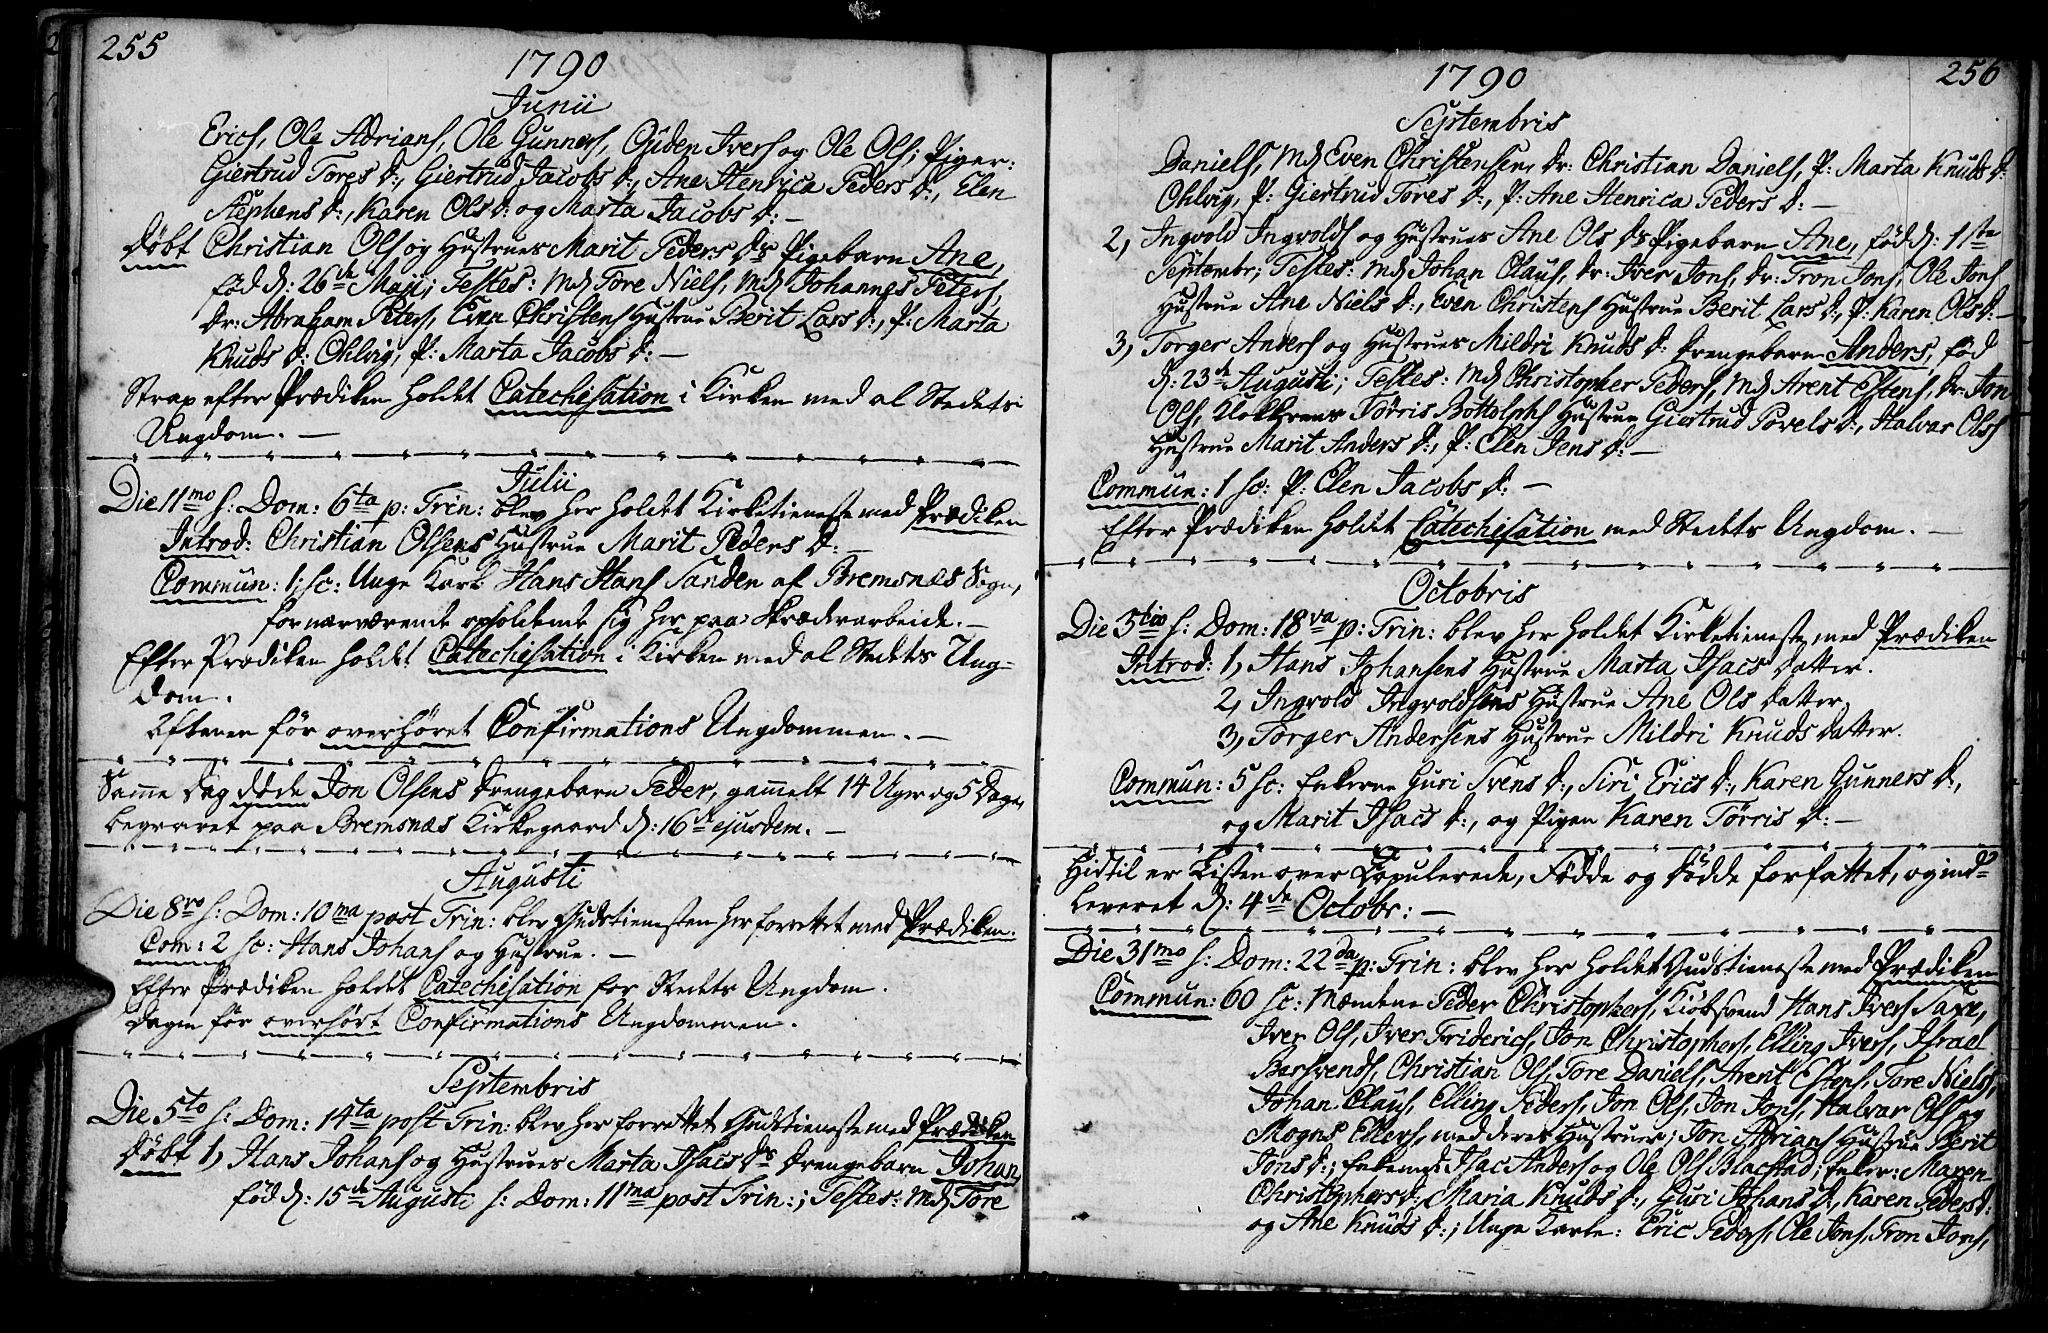 255
1790
Junii
Erics, Ole Adrians, Ole Gunners, Ouden Ivers og Ole Ols; Piger:
Giertrud Tores D:, Giertrud Jacobs D:, Ane Henrica Peders D:, Elen
Stephens D:, Karen Ols D: og Marta Jacobs D: —
Døbt Christian Ols og Hustrues Marit Peders Drs Pigebarn Ane,
fød d: 26de Maji; Testes: Md Tore Niels, Md Johannes Peters,
Dr: Abraham Peters, Even Christens Hustrue Berit Lars D:, P: Marta
Knuds D: Ohlvig, P: Marta Jacobs D: —
Strax efter Prædiken holdet Catechisation i Kirken med al Stedets
Ungdom. —
Julii
Die 11mo s: Dom: 6ta p: Trin: blev her holdet Kirketieneste med Prædiken
Introd: Christian Olsens Hustrue Marit Peders D: —
Commun: 1 sc: Unge Karl Hans Hans Sanden af Bremsnæs Sogn,
for nærværende opholdende sig her paa Skrædderarbeide. —
Efter Prædiken holdet Catechisation i Kirken med al Stedets Ung-
dom.
Aftenen før overhøret Confirmations Ungdommen. —
Samme Dag døde Jon Olsens Drengebarn Peder, gammelt 14 Uger og 5 Dage,
begravet paa Bremsnæs Kirkegaard d: 16de ejusdem. —
Augusti
Die 8vo s: Dom: 10ma post Trin: blev Gudstienesten her forrettet med Prædiken.
Com: 2 sc: Hans Johans og Hustrue. —
Efter Prædiken holdet Catechisation for Stedets Ungdom.
Dagen før overhørt Confirmations Ungdommen.
Septembris
Die 5to s: Dom: 14ta post Trin: blev her forrettet Gudstieneste med Prædiken
Døbt 1, Hans Johans og Hustrues Marta Isacs Drs Drengebarn Johan,
fød d: 15de Augusti s: Dom: 11ma post Trin:; Testes: Md Tore
256
1790
Septembris
Daniels, Md Even Christensen, Dr: Christian Daniels, P: Marta Knuds D:
Ohlvig, P: Giertrud Tores D:, P: Ane Henrica Peders D: —
2, Ingvold Ingvolds og Hustrues Ane Ols Drs Pigebarn Ane, fød d: 1ste
Septembr; Testes: Md Johan Claus, Dr: Iver Jons, Dr: Tron Jons, Ole Jons
Hustrue Ane Niels D:, Even Christens Hustrue Berit Lars D:, P: Karen Ols D: —
3, Torger Anders og Hustrues Mildri Knuds D: Drengebarn Anders, fød
d: 23de Augusti; Testes: Md Christopher Peders, Md Arent Estens, Dr: Jon
Ols, Klokkerens Tørris Bottolphs Hustrue Giertrud Povels D:, Halvar Ols
Hustrue Marit Anders D:, P: Elen Jens D: —
Commun: 1 sc: P: Elen Jacobs D: —
Efter Prædiken holdet Catechisation med Stedets Ungdom. —
Octobris
Die 3tio s: Dom: 18va p: Trin: blev her holdet Kirketieneste med Prædiken
Introd: 1, Hans Johansens Hustrue Marta Isacs Datter.
2, Ingvold Ingvoldsens Hustrue Ane Ols Datter.
3, Torger Andersens Hustrue Mildri Knuds Datter.
Commun: 5 sc: Enkerne Guri Svens D:, Siri Erics D:, Karen Gunners D:,
og Marit Isacs D:, og Pigen Karen Tørris D: —
Hidtil er Listen over Copulerede, Fødde og Dødde forfattet, og ind-
leveret d: 4de Octobr: —
Die 31mo s: Dom: 22da p: Trin: blev her holdet Gudstieneste med Prædiken
Commun: 60 sc: Mændene Peder Christophers, Kiøbsvend Hans Ivers Saxe,
Iver Ols, Iver Friderics, Jon Christophers, Elling Ivers, Israel
Barsvends, Christian Ols, Tore Daniels, Arent Estens, Tore Niels,
Johan Claus, Elling Peders, Jon Ols, Jon Jons, Halvar Ols og
Mogns Ellers, med deres Hustruer; Jon Adrians Hustrue Berit
Jons D:; Enkemd Isac Anders og Ole Ols Blacstad; Enker: Maren
Christophers D:, Maria Knuds D:, Guri Johans D:, Karen Peders D:
og Ane Knuds D:; Unge Karle: Eric Peders, Ole Jons, Tron Jons,